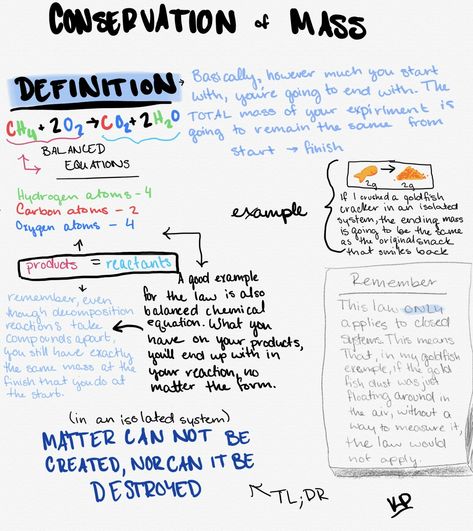 CONSERVATION of MASS
DEFINITION
Basically, however much you start
with, you're going to end with. The
TOTAL mass of your expiriment is
going to remain the same from
start → finish
CH4 + 2O2 → CO2 + 2H2O
BALANCED
EQUATIONS
Hydrogen atoms - 4
Carbon atoms - 2
Oxygen atoms - 4
products = reactants
remember, even
though decomposition
reactions take
compounds apart,
you still have exactly
the same mass at the
finish that you do at
the start.
A good example
for the law is also
balanced chemical
equation. What you
have on your products,
you'll end up with in
your reaction, no
matter the form.
example
2g → 2g
If I crushed a goldfish
cracker in an isolated
system, the ending mass
is going to be the same
as the original snack
that smiles back
Remember
This law ONLY
applies to closed
systems. This means
That, in my goldfish
example, if the gold
fish dust was just
floating around in
the air, without a
way to measure it,
the law would
not apply.
(in an isolated system)
MATTER CAN NOT BE
CREATED, NOR CAN IT BE
DESTROYED
TL;DR